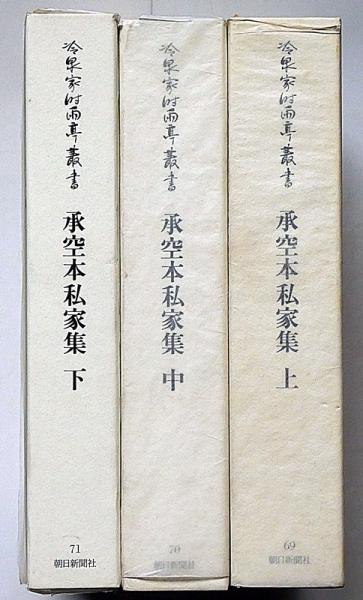 冷泉家時雨亭叢書
承空本私家集 上
69
朝日新聞社
冷泉家時雨亭叢書
承空本私家集 中
70
朝日新聞社
冷泉家時雨亭叢書
承空本私家集 下
71
朝日新聞社